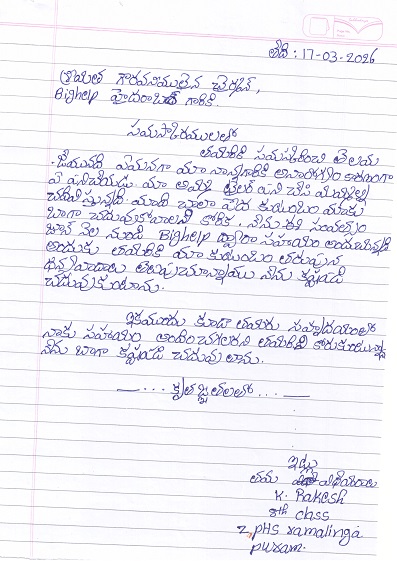 తేది : 17-03-2026
శ్రీయుత గౌరవనీయులైన చైర్మన్,
Bighelp హైదరాబాద్ గారికి.
నమస్కారములతో
తమరికి నమస్కరించి తెలియ
చేయునది ఏమనగా మా నాన్నగారికి అనారోగ్యం కారణంగా
ఏ పనిచేయడు. మా అమ్మ టైలర్ పని చేసి మమ్మల్ని
చదివిస్తున్నారు. మాది చాలా పేద కుటుంబం మాకు
బాగా చదువుకోవాలని కోరిక. నేను ఈ సంవత్సరం
జూన్ నెల నుండి Bighelp ద్వారా సహాయం
అందుకు తమరికి మా కుటుంబం తరుపున
ధన్యవాదాలు నేను కష్టపడి
చదువుకుంటాను.
ఇకముందు కూడా తమరు సహృదయంతో
నాకు సహాయం అందించగలరని తమరిని కోరుకుంటున్నా
నేను బాగా కష్టపడి చదువుతాను.
— . . . కృతజ్ఞతలతో . . . —
ఇట్లు
తమ విధేయుడు
K. Rakesh
8th class
Z.PHS ramalinga
puram.